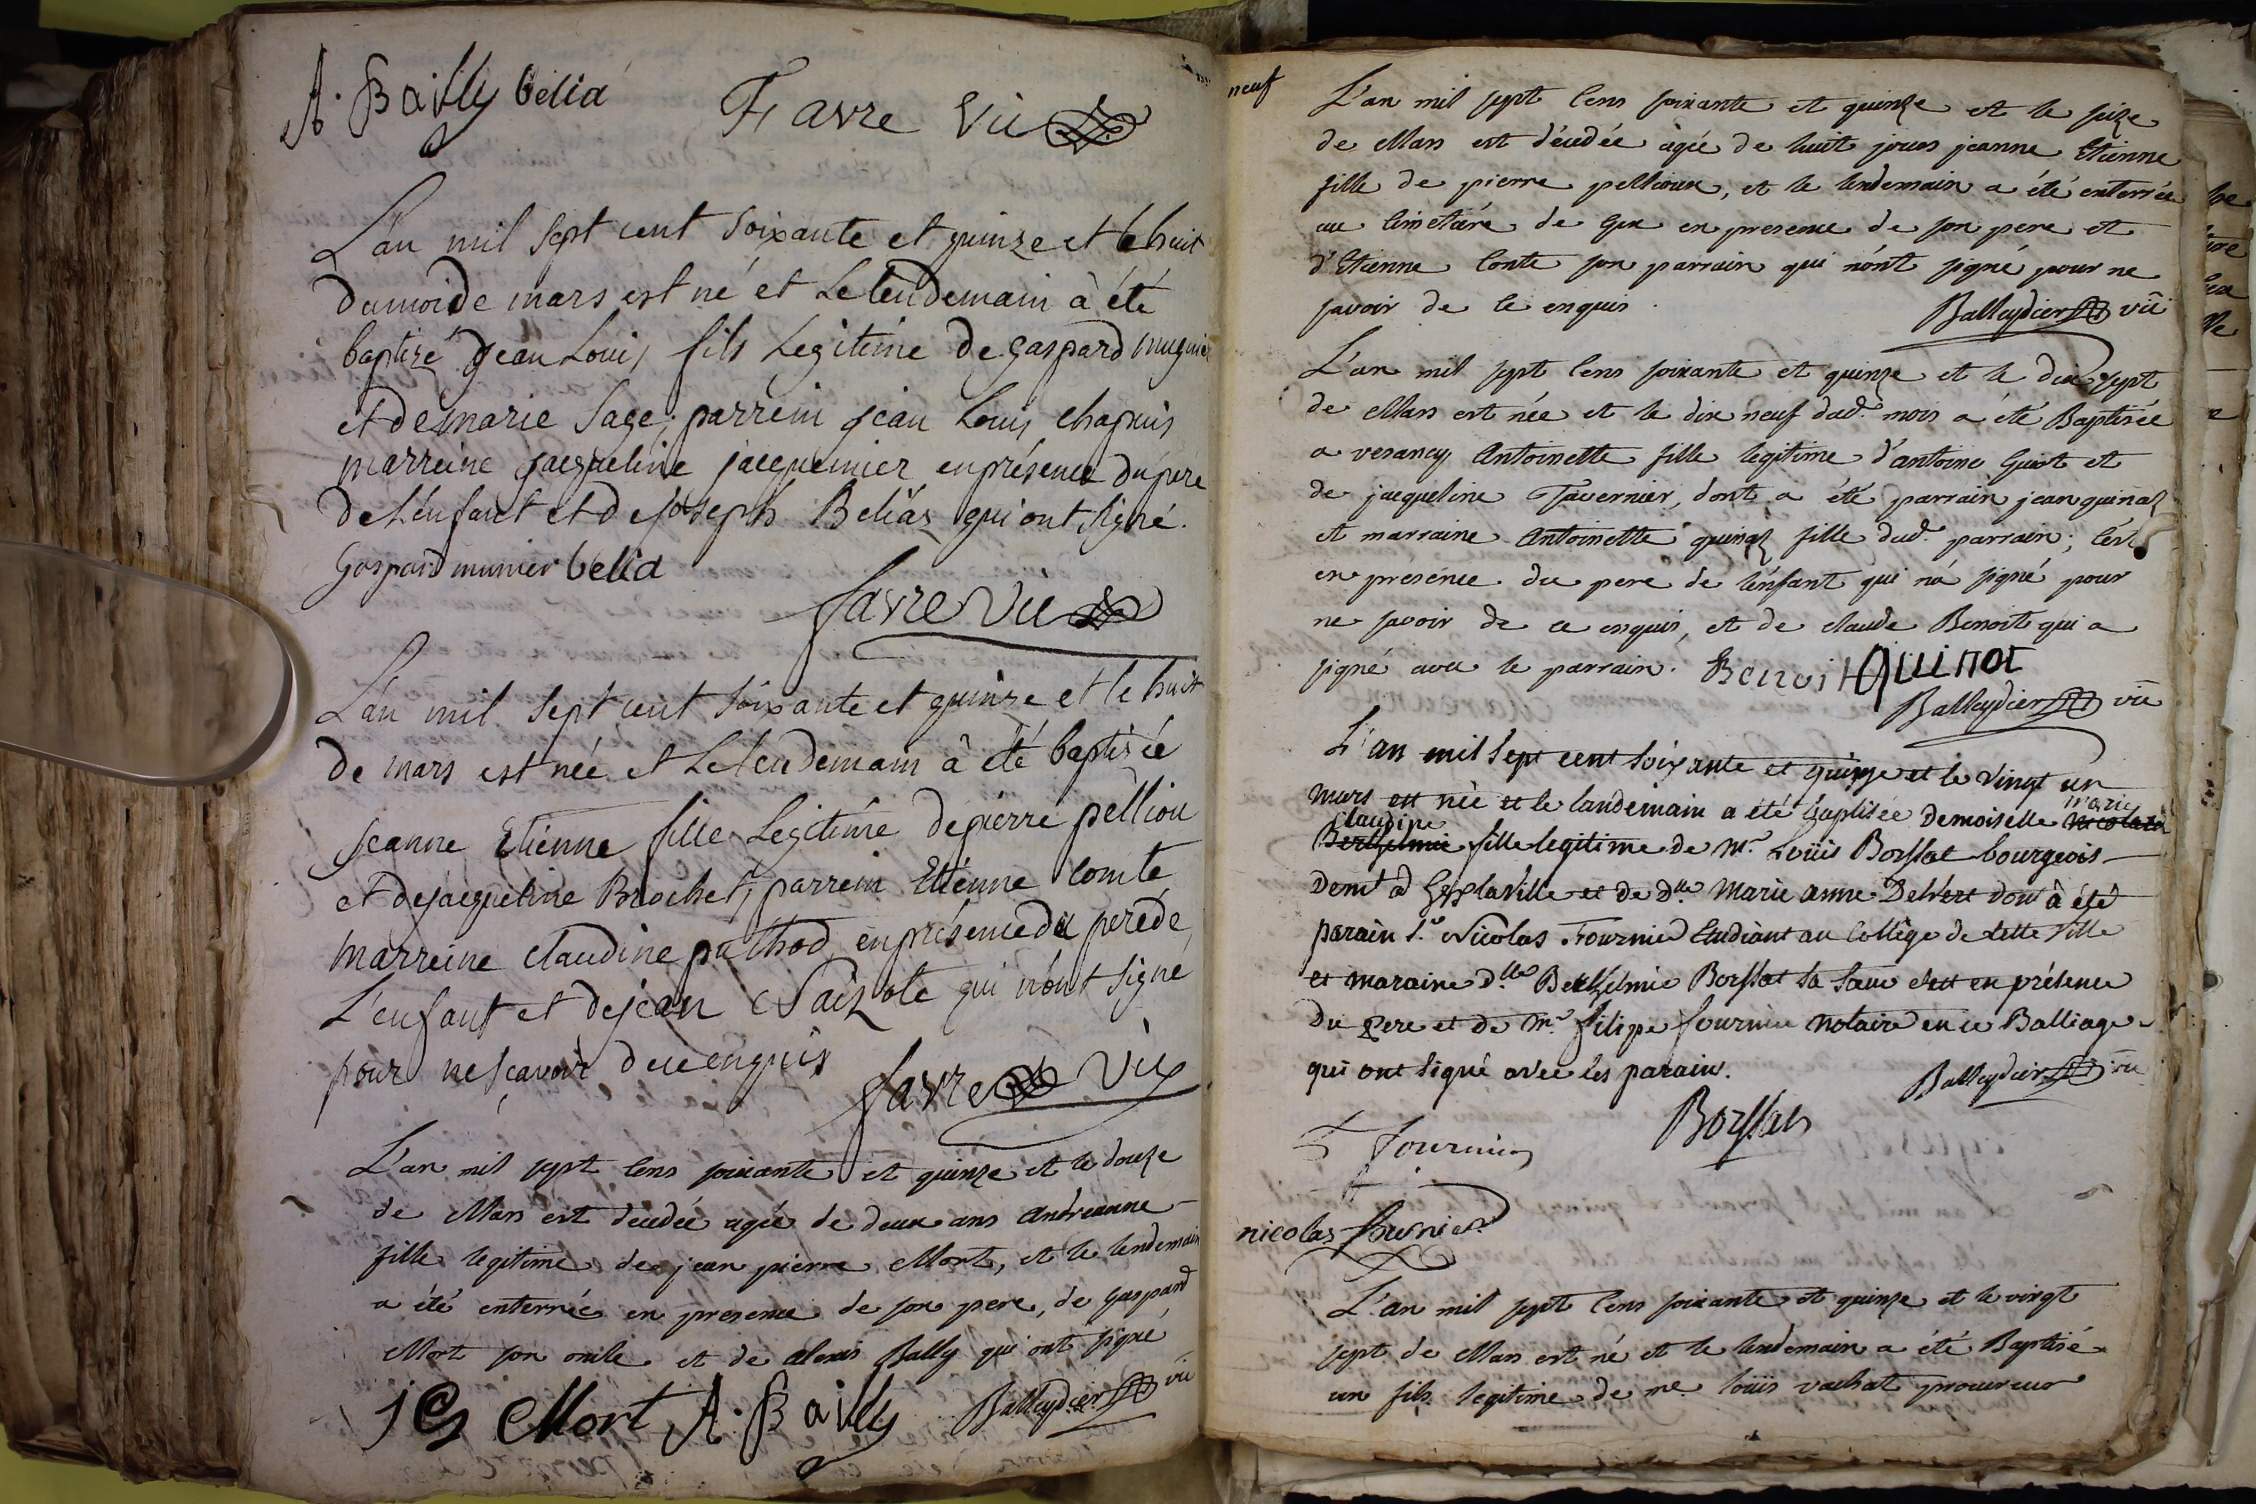 A. Bailly belia
Favre Vic
L'an mil Sept cent Soixante et quinze et le huit
du moi de mars est né et Le lendemain à été
baptizé jean Louis fils Legitime de gaspard mugnier
et de marie Sage; parrein jean Louis chapuis
marreine jacqueline jacquemier en présence du pere
de L'enfant et de joseph Beliaz qui ont signé.
Gaspard munier belia
favre Vic
L'an mil Sept cent Soixante et quinze et le huit
de mars est née et Le lendemain à été baptisée
jeanne Etienne fille Legitime de pierre pelliou
et de jacqueline Brochet, parrein Etienne Comte
marreine claudine puthod en présence du pere de
L'enfant et de jean qui n'ont signé
pour ne sçavoir de ce enquis
favre Vic
L'an mil sept cens soixante et quinze et le douze
de Mars est decedée agée de deux ans andreanne
fille legitime de jean pierre Mort, et le lendemain
a été enterrée en presence de son pere, de gaspard
Mort son oncle et de alexis Bally qui ont signé
Mort A. Bailly
Balleydier vic
neuf
L'an mil sept cens soixante et quinze et le seize
de Mars est décedée agée de huit jours jeanne Etienne
fille de pierre pellioux, et le lendemain a été enterrée
au Cimetiére de Gex en presence de son pere et
d'Etienne Conte son parrain qui n'ont signé pour ne
savoir de ce enquis.
Balleydier vic
L'an mil sept cens soixante et quinze et le dix sept
de Mars est née et le dix neuf dud. mois a été Baptisée
a vesancy Antoinette fille legitime d'antoine et
de jacqueline Tavernier, dont a été parrain jean quinaz
et marraine Antoinette quinaz fille dud. parrain;
en présence du pere de l'enfant qui n'a signé pour
ne savoir de ce enquis, et de claude Benoit qui a
signé avec le parrain. Benoit Quinat
Balleydier vic
L'an mil sept cent soixante et quinze et le vingt un
mars est née et le landemain a été baptisée Demoiselle marie
claudine fille legitime de Mr. Loüis Borssat bourgeois
Demt. à Gex la ville et de Dlle Marie anne Delvert dont à été
parain Sr. Nicolas Fournier Etudiant au Collège de cette ville
et maraine Dlle Berthelmie Borssat sa sœur c'est en présence
du Pere et de Mr. filipe fournier Notaire en ce Balliage
qui ont signé avec les parain.
Balleydier vic
Borssat
fournier
nicolas fournier
L'an mil sept cens soixante et quinze et le vingt
sept de Mars est né et le lendemain a été Baptisé
un fils legitime de me. loüis vachat procureur